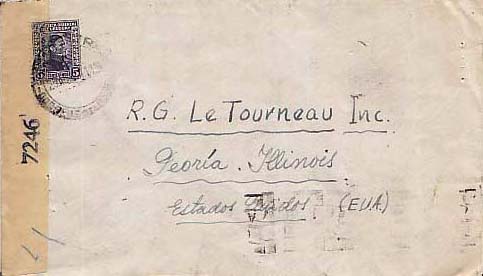 5 5
7246
R. G. Le Tourneau Inc.
Peoría. Illinois
Estados Unidos (EUA)